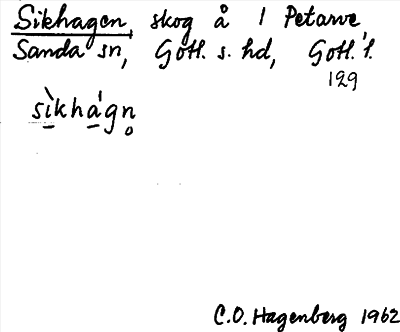 Sikhagen, skog å 1 Petarve
Sanda sn, Gotl. s. hd, Gotl. l.
129
sìkhágn̥
C.O. Hagenberg 1962